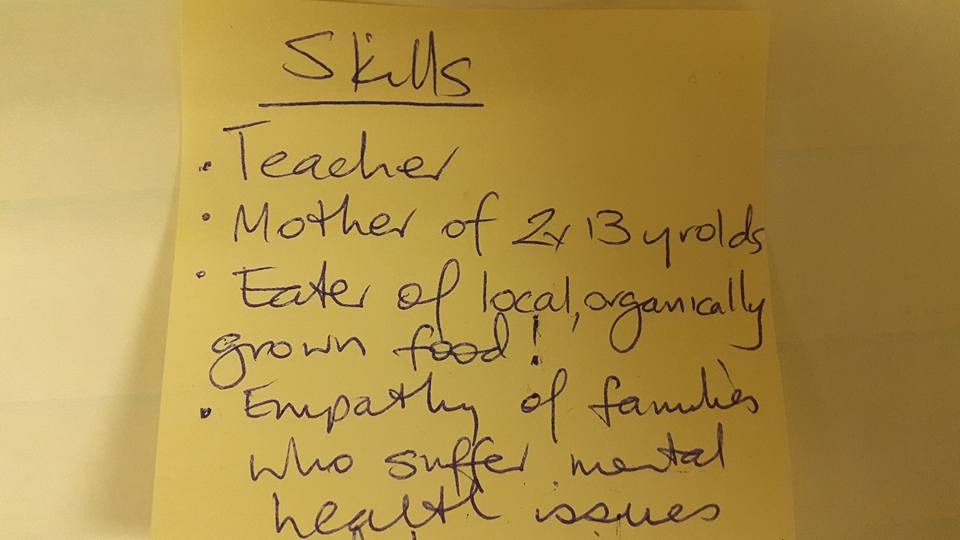 Skills
• Teacher
• Mother of 2x 13 yrolds
• Eater of local, organically
grown food!
• Empathy of families
who suffer mental
health issues